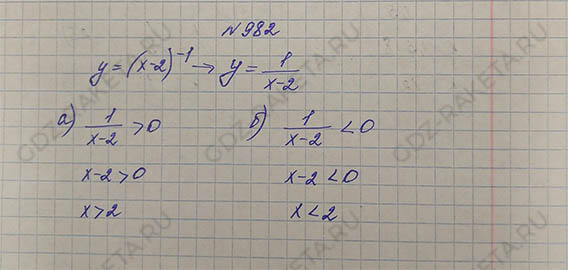 №982
y=(x-2)⁻¹ → y=1/(x-2)
а) 1/(x-2) >0
x-2>0
x>2
б) 1/(x-2) <0
x-2<0
x<2
GDZ-RAKETA.RU